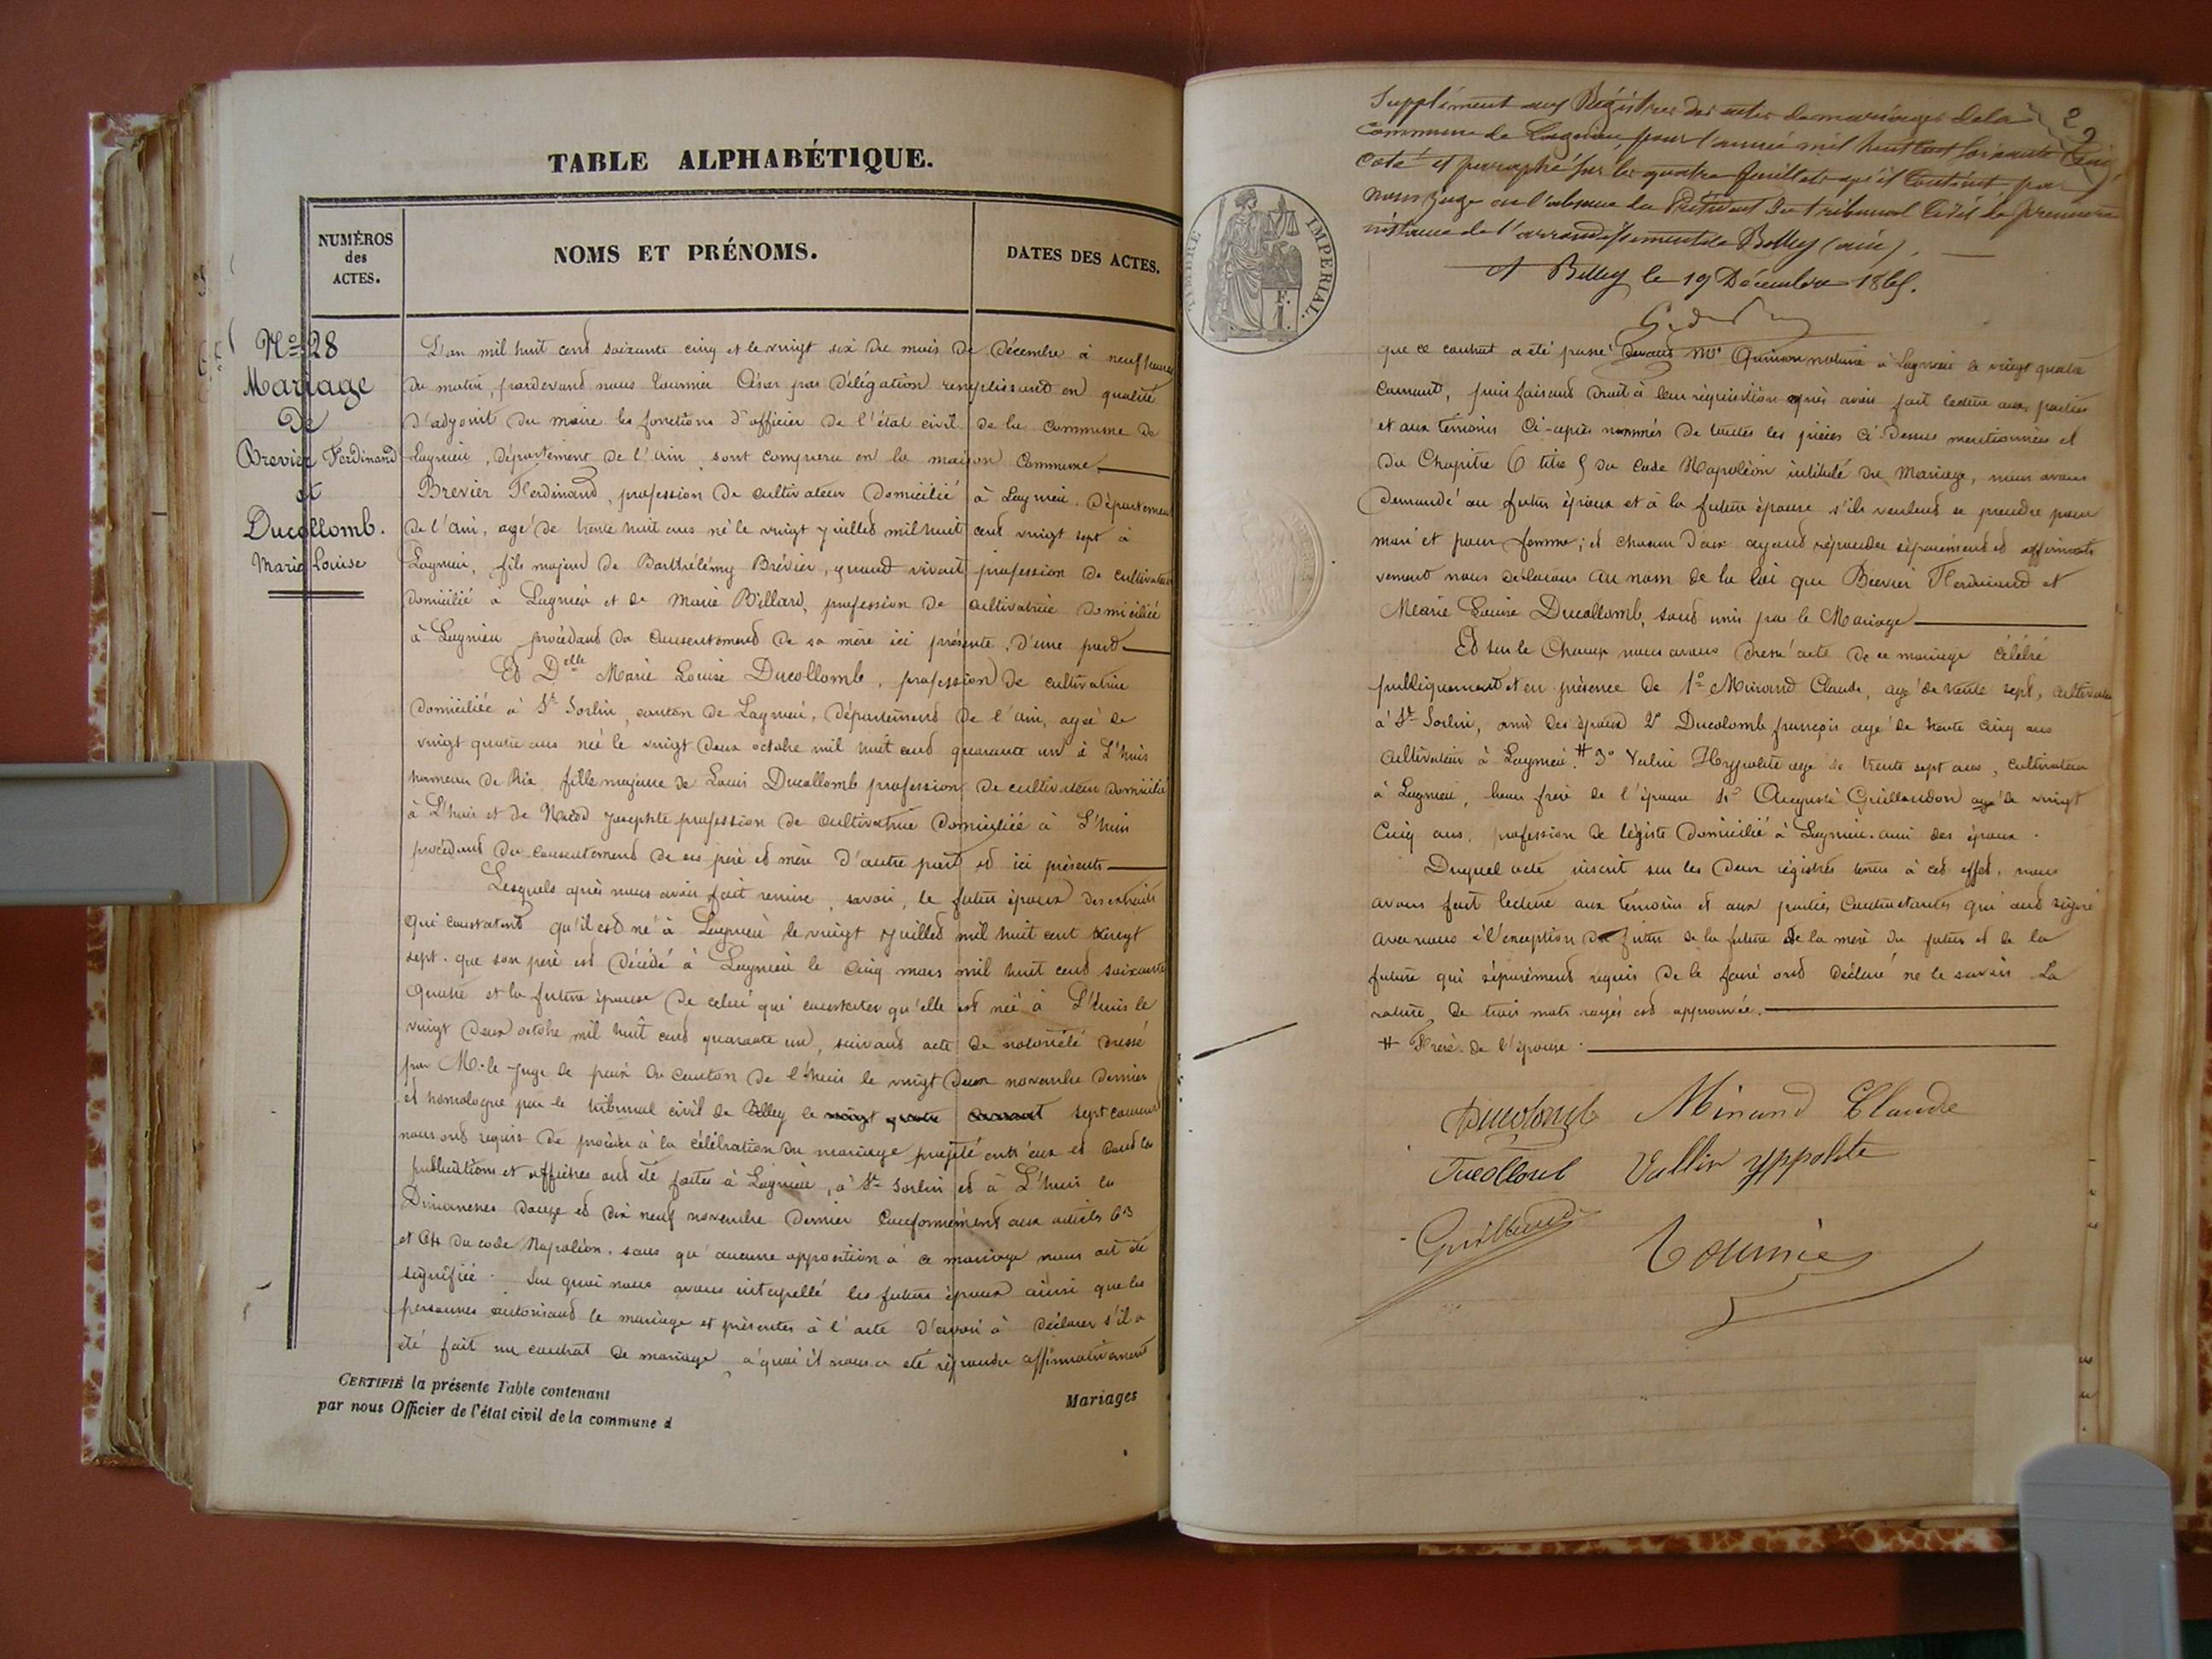 TABLE ALPHABÉTIQUE.
NUMÉROS
des
ACTES.
NOMS ET PRÉNOMS.
DATES DES ACTES.
No 28
Mariage
de
Brevier Ferdinand
et
Ducollomb.
Marie Louise
L'an mil huit cent soixante cinq et le vingt six du mois de décembre à neuf heures
du matin, pardevand nous Tournier César par délégation remplissant en qualité
d'adjoint du maire les fonctions d'officier de l'état civil de la commune de
Lagnieu, département de l'ain sont comparu en la maison commune
Brevier Ferdinand, profession de cultivateur domicilié à Lagnieu. Département
de l'ain, agé de trente huit ans né le vingt juillet mil huit cent vingt sept à
Lagnieu, fils majeur de Barthélémy Brévier, quand vivait profession de cultivateur
domicilié à Lagnieu et de Marie Billard, profession de cultivatrice domiciliée
à Lagnieu procédand du consentement de sa mère ici présente, d'une part
Et Delle Marie Louise Ducollomb, profession de cultivatrice
domiciliée à St Sorlin, canton de Lagnieu, département de l'ain, agée de
vingt quatre ans née le vingt deux octobre mil huit cent quarante un à L'huis
hameau de Rix, fille majeure de Louis Ducollomb profession de cultivateur domicilié
à L'huis et de Josephte profession de cultivatrice domiciliée à L'huis
procédand du consentement de ses père et mère d'autre part et ici présents
Lesquels après nous avoir fait remise, savoir, le futur époux des extraits
qui constatent qu'il est né à Lagnieu le vingt juillet mil huit cent vingt
sept. que son père est décédé à Lagnieu le cinq mars mil huit cent soixante
quatre et la future épouse de celui qui constater qu'elle est née à L'huis le
vingt deux octobre mil huit cent quarante un, suivand acte de notoriété dressé
par M. le juge de paix du canton de L'huis le vingt deux novembre dernier
et homologué par le tribunal civil de Belley le vingt quatre courant sept courant
nous ont requis de procéder à la célébration du mariage projeté entr'eux et dont les
publications et affiches ont été faites à Lagnieu, à St Sorlin et à L'huis les
Dimanches douze et dix neuf novembre dernier conformément aux articles 63
et 64 du code Napoléon, sans qu'aucune opposition à ce mariage nous ait été
signifiée. Sur quoi nous avons interpellé les futurs époux ainsi que les
personnes autorisand le mariage et présentes à l'acte d'avoir à déclarer s'il a
été fait un contrat de mariage à quoi il nous a été répondu affirmativement
CERTIFIÉ la présente Table contenant
par nous Officier de l'état civil de la commune d
Mariages
Supplément aux Régistres des actes de mariages de la
Commune de Lagnieu, pour l'année mil huit cent soixante Cinq
Coté et paraphé sur les quatre feuillets qu'il contient par
nous Juge en l'absence du Président du tribunal civil de première
instance de l'arrondissement de Belley (ain).
A Belley le 19 Décembre 1865.
2
TIMBRE IMPERIAL.
F.
1.
que ce contrat a été passé devant Me Quinson notaire à Lagnieu le vingt quatre
courant, puis faisand droit à leur réquisition après avoir fait lecture aux parties
et aux témoins ci-après nommés de toutes les pièces ci-dessus mentionnées et
du Chapitre 6 titre 5 du code Napoléon intitulé du Mariage, nous avons
demandé au futur époux et à la future épouse s'ils veulent se prendre pour
mari et pour femme; et chacun d'eux ayand répondu séparément et affirmati
vement nous déclarons au nom de la loi que Brevier Ferdinand et
Marie Louise Ducollomb, sont unis par le Mariage
Et sur le Champ nous avons dressé acte de ce mariage célébré
publiquement et en présence de 1o Minand Claude, agé de trente sept, cultivateur
à St Sorlin, ami des époux 2o Ducolomb françois agé de trente cinq ans
cultivateur à Lagnieu. # 3o Vallin Hyppolite agé de trente sept ans, cultivateur
à Lagnieu, beau frère de l'épouse 4o Auguste Guillaudon agé de vingt
cinq ans, profession de légiste domicilié à Lagnieu. ami des époux.
Duquel acte inscrit sur les deux régistres tenus à cet effet, nous
avons fait lecture aux témoins et aux parties contractantes qui ont signé
avec nous à l'exception du futur de la future de la mère du futur et de la
future qui séparément requis de le faire ont déclaré ne le savoir La
rature de trois mots rayés est approuvée.
# Frère de l'épouse.
Ducolomb Minand Claude
Ducollomb Vallin yppolite
Tournier